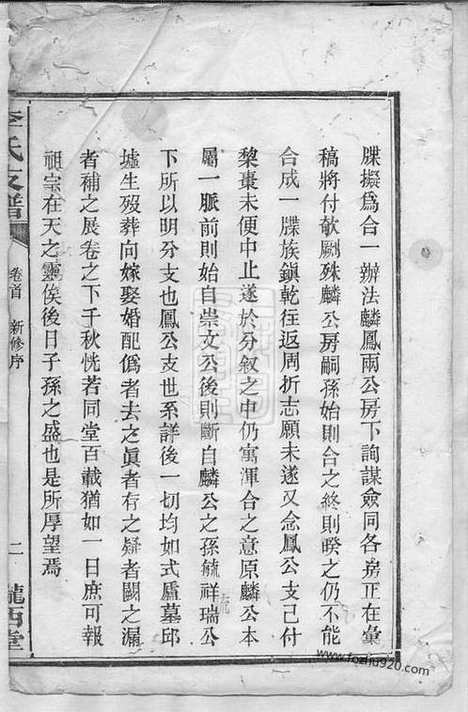 牒擬爲合一辦法麟鳳兩公房下詢謀僉同各房正在彙
稿將付欹劂殊麟公房嗣孫始則合之終則暌之仍不能
合成一牒族鎭乾往返周折志願未遂又念鳳公支己付
黎棗未便中止遂於分敘之中仍寓渾合之意原麟公本
屬一脈前則始自崇文公後則斷自麟公之孫毓祥瑞公
下所以明分支也鳳公支世系詳後一切均如式廬墓邱
墟生歿葬向嫁娶婚配僞者去之眞者存之疑者闕之漏
者補之展卷之下千秋恍若同堂百載猶如一日庶可報
祖宗在天之靈俟後日子孫之盛也是所厚望焉
李氏支譜
卷首 新修序
二
隴西堂
www.fozhu920.com